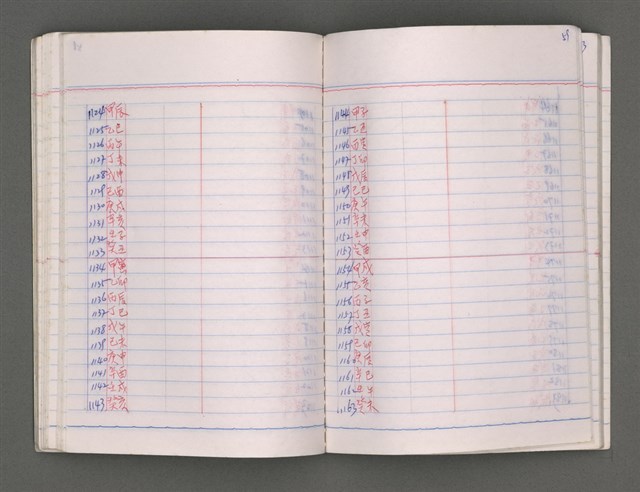 1124 甲辰
1125 乙巳
1126 丙午
1127 丁未
1128 戊申
1129 己酉
1130 庚戌
1131 辛亥
1132 壬子
1133 癸丑
1134 甲寅
1135 乙卯
1136 丙辰
1137 丁巳
1138 戊午
1139 己未
1140 庚申
1141 辛酉
1142 壬戌
1143 癸亥
1144 甲子
1145 乙丑
1146 丙寅
1147 丁卯
1148 戊辰
1149 己巳
1150 庚午
1151 辛未
1152 壬申
1153 癸酉
1154 甲戌
1155 乙亥
1156 丙子
1157 丁丑
1158 戊寅
1159 己卯
1160 庚辰
1161 辛巳
1162 壬午
1163 癸未